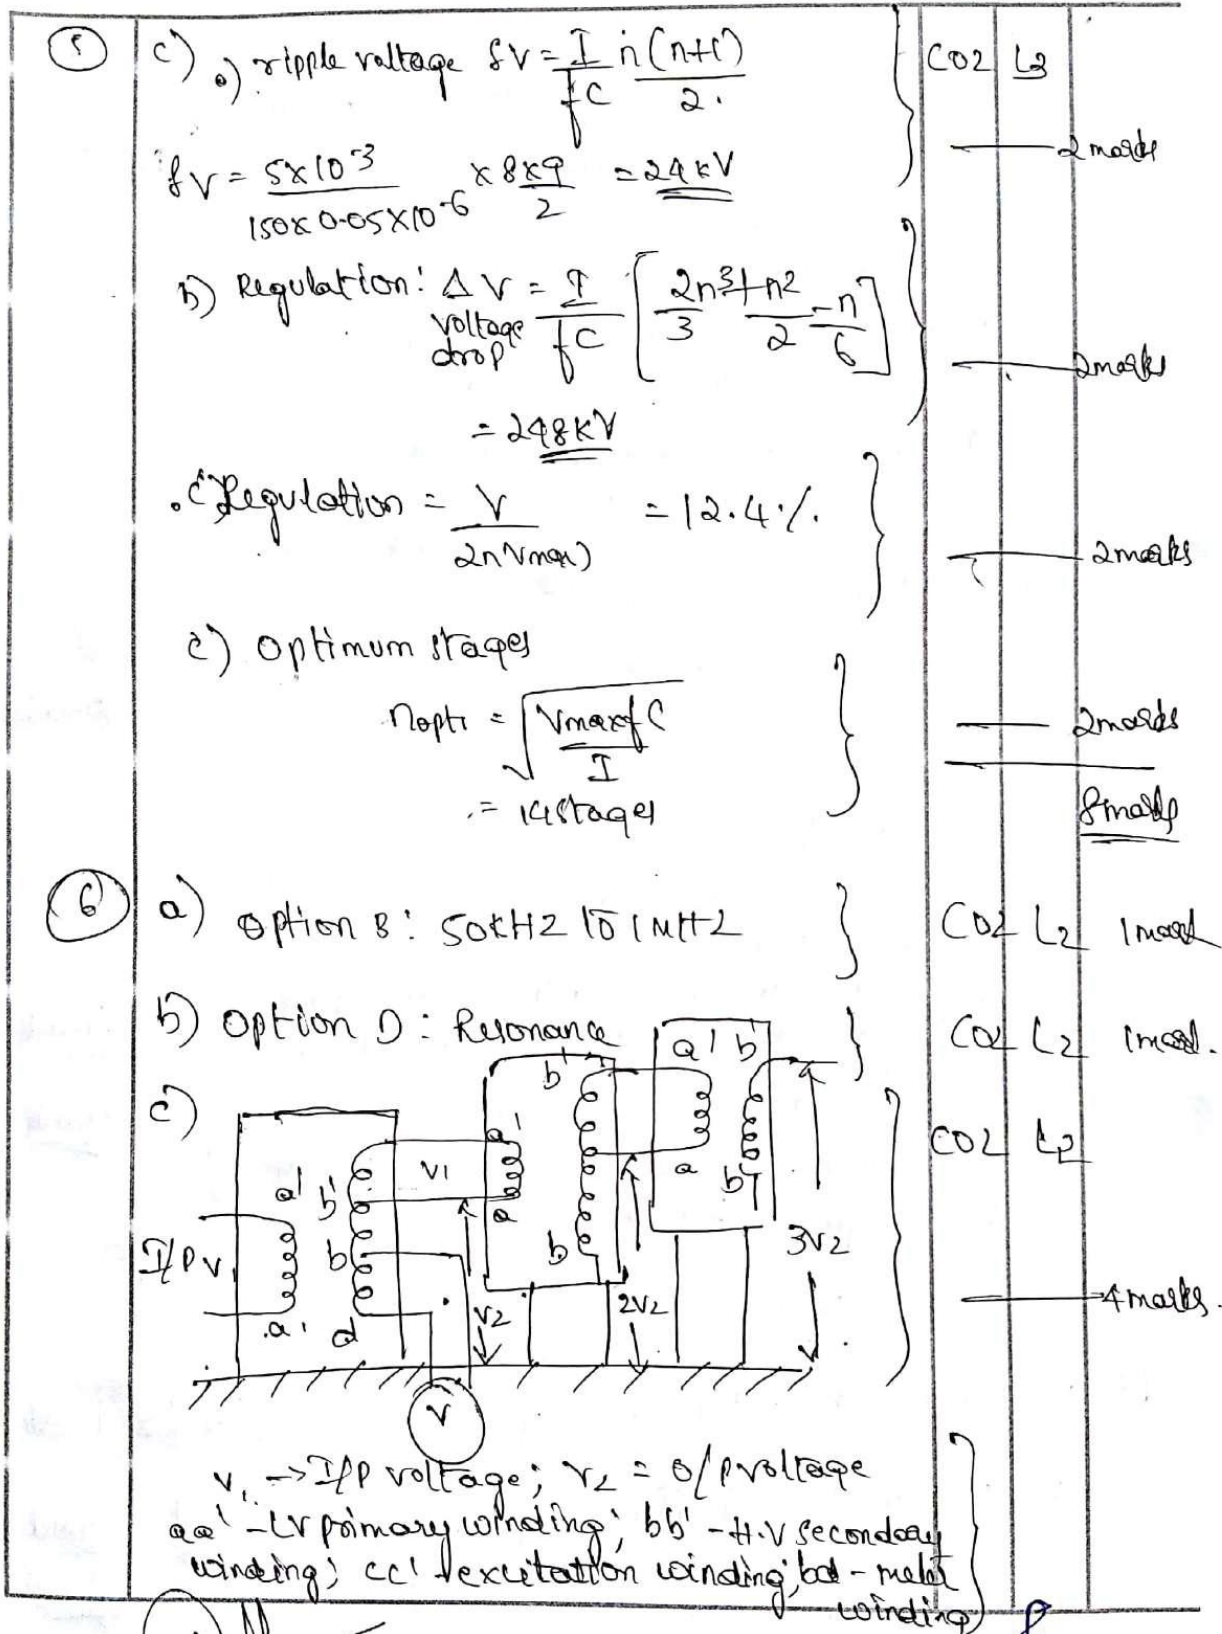 5 c) a) ripple voltage δV = I/fC n(n+1)/2. CO2 L3
δV = 5×10^-3/150×0.05×10^-6 × 8×9/2 = 24kV 2 marks
b) Regulation: ΔV = I/fC [2n^3/3 + n^2/2 - n/6] 2 marks
voltage drop
= 248kV
c) Regulation = V/2nVmax) = 12.4 %. 2 marks
c) Optimum stages
nopti = √Vmax f C/I 2 marks
= 14 stages 8 marks
6 a) Option B: 50kHZ to 1MHZ CO2 L2 1 mark
b) Option D: Resonance CO2 L2 1 mark.
c) CO2 L2
a' b' a' b' a' b'
V1 a a b
I/P V1 b b 3V2
a d V2 2V2 4 marks.
V
V1 → I/P voltage; V2 = O/P voltage
aa' - LV primary winding; bb' - H.V secondary
winding; cc' - excitation winding; bd - meter
winding